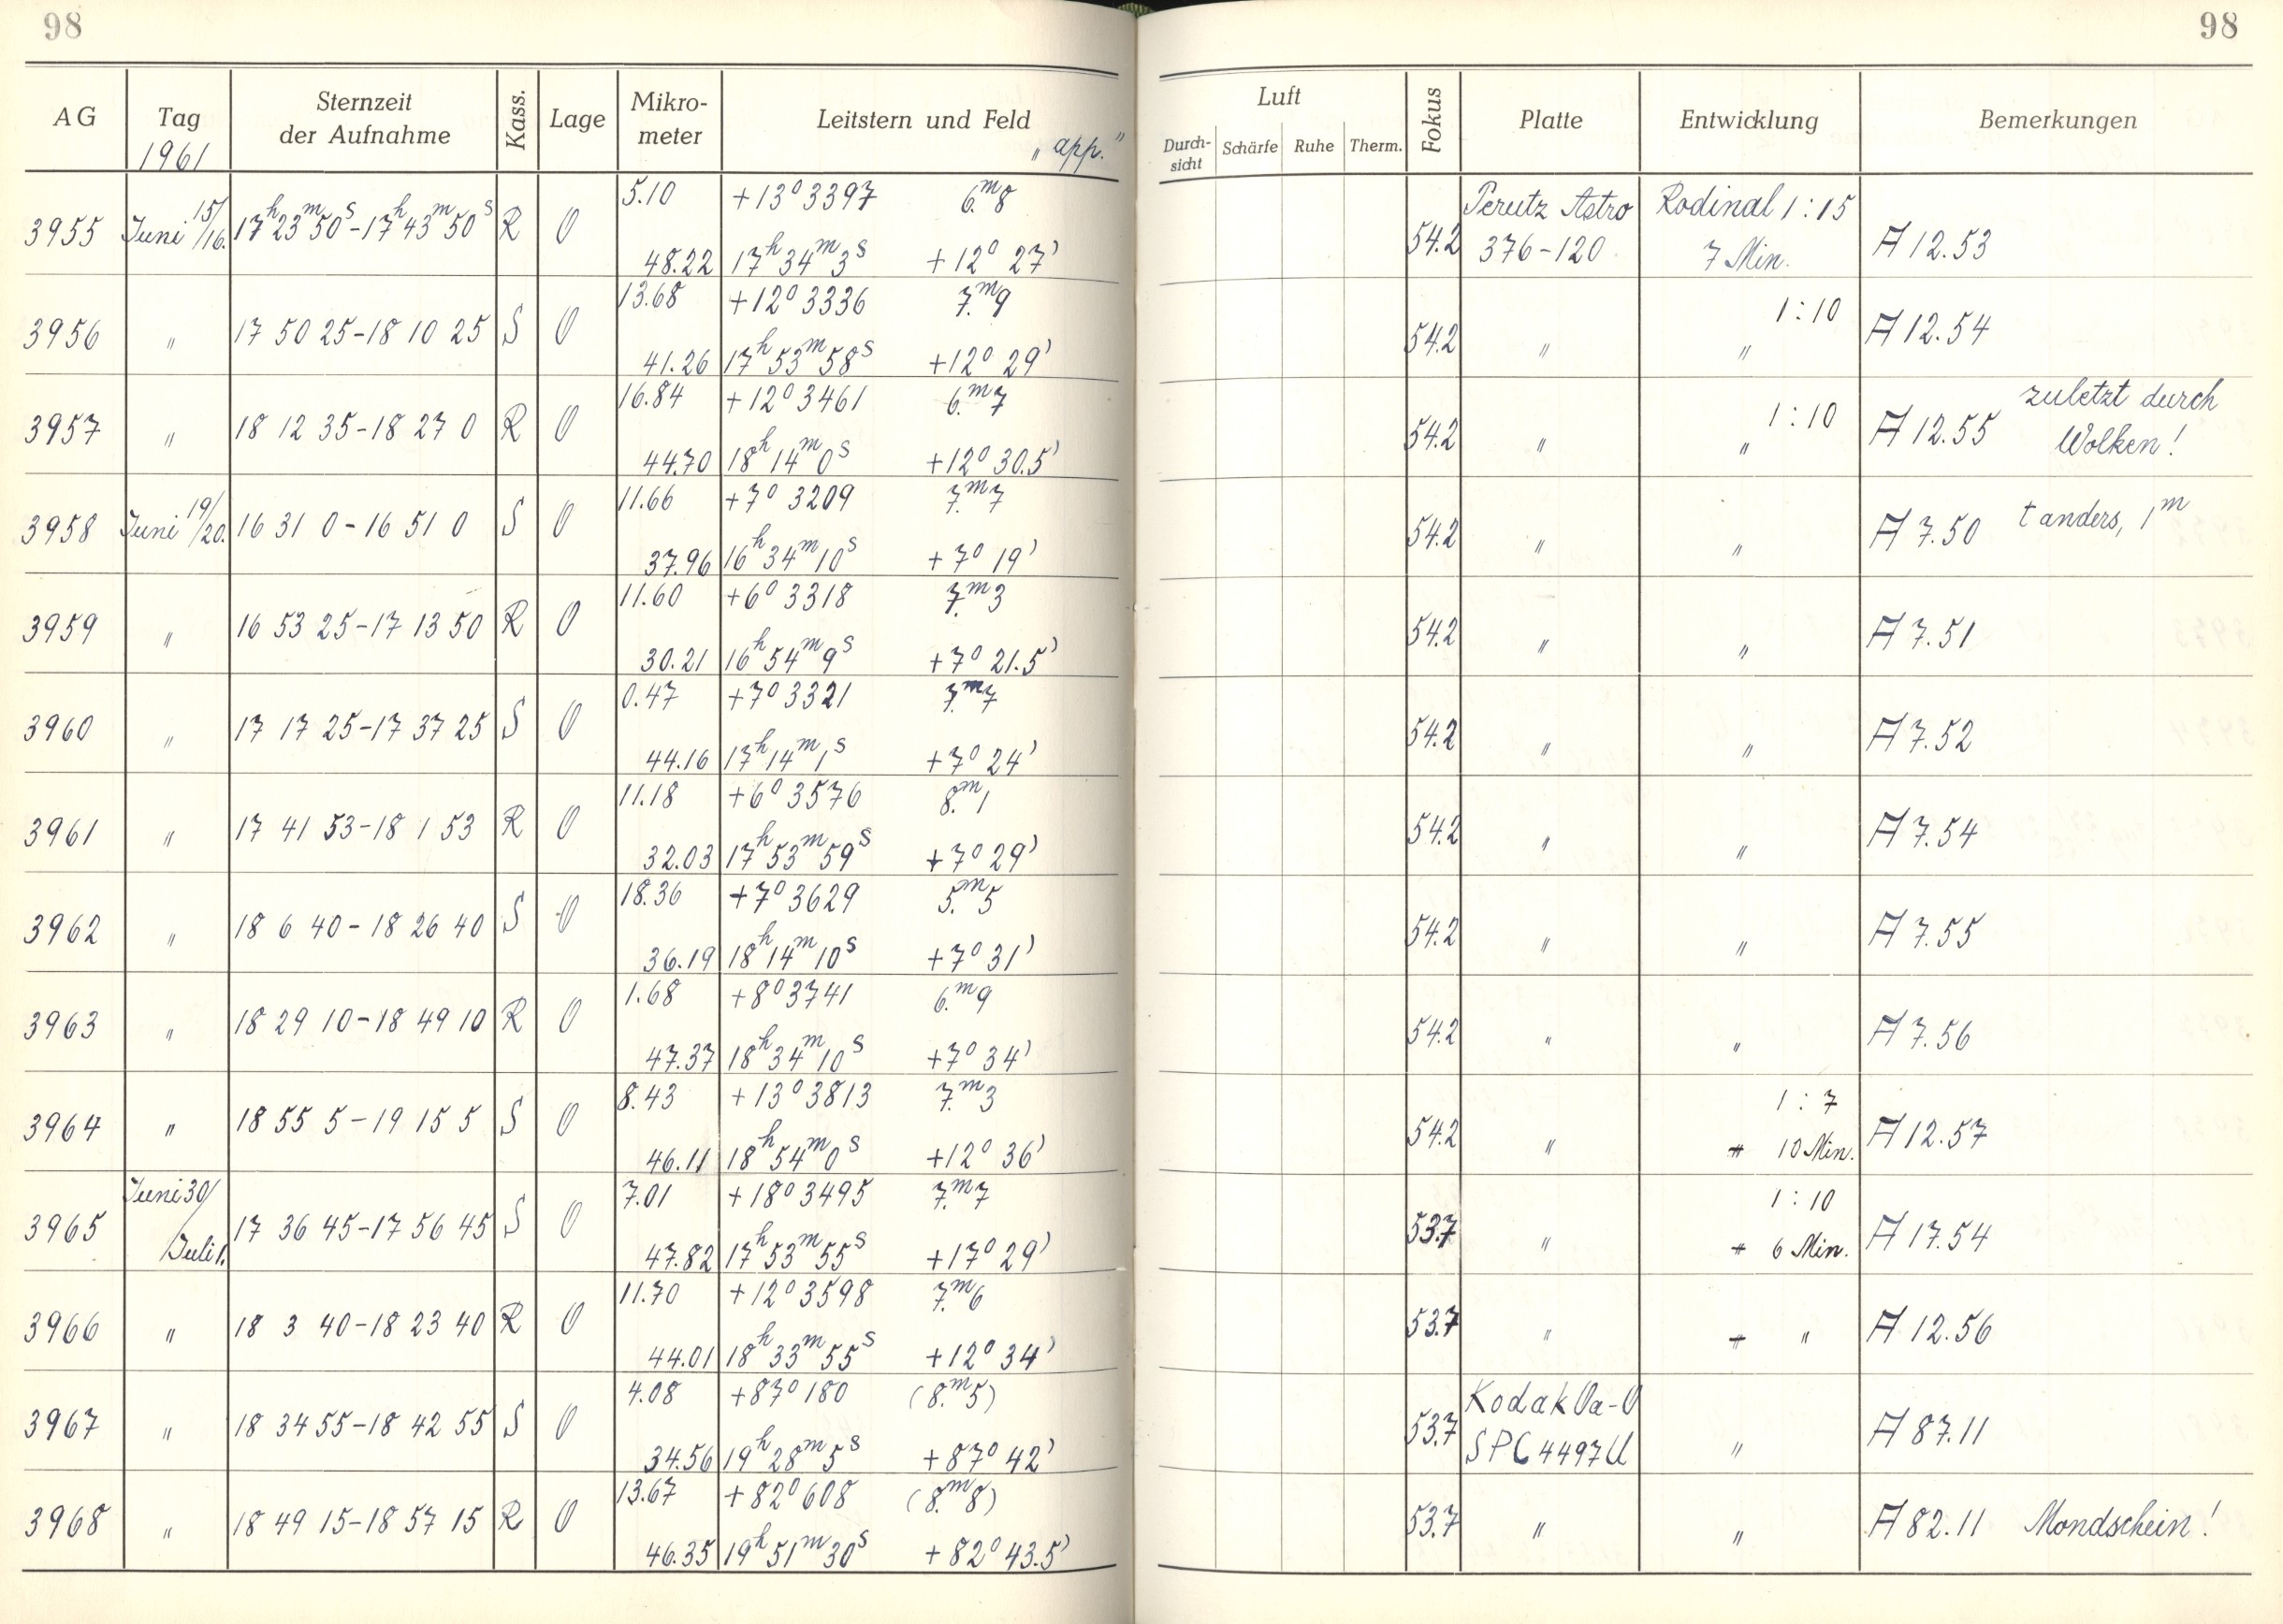 98 98
AG Tag Sternzeit der Aufnahme Kass. Lage Mikro- meter Leitstern und Feld Luft Fokus Platte Entwicklung Bemerkungen
1961 "app." Durch- sicht Schärfe Ruhe Therm.
5.10 +13° 3397 6.m8 Perutz Astro Rodinal 1:15
3955 Juni 15/16. 17h23m50s-17h43m50s R O 54.2 376-120 7 Min. A 12.53
48.22 17h34m3s +12° 27'
13.68 +12° 3336 7.m9 1:10
3956 " 17 50 25-18 10 25 S O 54.2 " " A 12.54
41.26 17h53m58s +12° 29'
16.84 +12° 3461 6.m7 1:10 zuletzt durch
3957 " 18 12 35-18 27 0 R O 54.2 " " A 12.55 Wolken!
44.70 18h14m0s +12° 30.5'
11.66 +7° 3209 7.m7
3958 Juni 19/20. 16 31 0-16 51 0 S O 54.2 " " A 7.50 t anders, 1m
37.96 16h34m10s +7° 19'
11.60 +6° 3318 7.m3
3959 " 16 53 25-17 13 50 R O 54.2 " " A 7.51
30.21 16h54m9s +7° 21.5'
0.47 +7° 3321 7.m7
3960 " 17 17 25-17 37 25 S O 54.2 " " A 7.52
44.16 17h14m1s +7° 24'
11.18 +6° 3576 8.m1
3961 " 17 41 53-18 1 53 R O 54.2 " " A 7.54
32.03 17h53m59s +7° 29'
18.36 +7° 3629 5.m5
3962 " 18 6 40-18 26 40 S O 54.2 " " A 7.55
36.19 18h14m10s +7° 31'
1.68 +8° 3741 6.m9
3963 " 18 29 10-18 49 10 R O 54.2 " " A 7.56
47.37 18h34m10s +7° 34'
8.43 +13° 3813 7.m3 1:7
3964 " 18 55 5-19 15 5 S O 54.2 " " 10 Min. A 12.57
46.11 18h54m0s +12° 36'
7.01 +18° 3495 7.m7 1:10
3965 Juni 30/Juli 1. 17 36 45-17 56 45 S O 53.7 " " 6 Min. A 17.54
47.82 17h53m55s +17° 29'
11.70 +12° 3598 7.m6
3966 " 18 3 40-18 23 40 R O 53.7 " " " A 12.56
44.01 18h33m55s +12° 34'
4.08 +87° 180 (8.m5) Kodak Oa-O
3967 " 18 34 55-18 42 55 S O 53.7 SPC 4497U " A 87.11
34.56 19h28m5s +87° 42'
13.67 +82° 608 (8.m8)
3968 " 18 49 15-18 57 15 R O 53.7 " " A 82.11 Mondschein!
46.35 19h51m30s +82° 43.5'